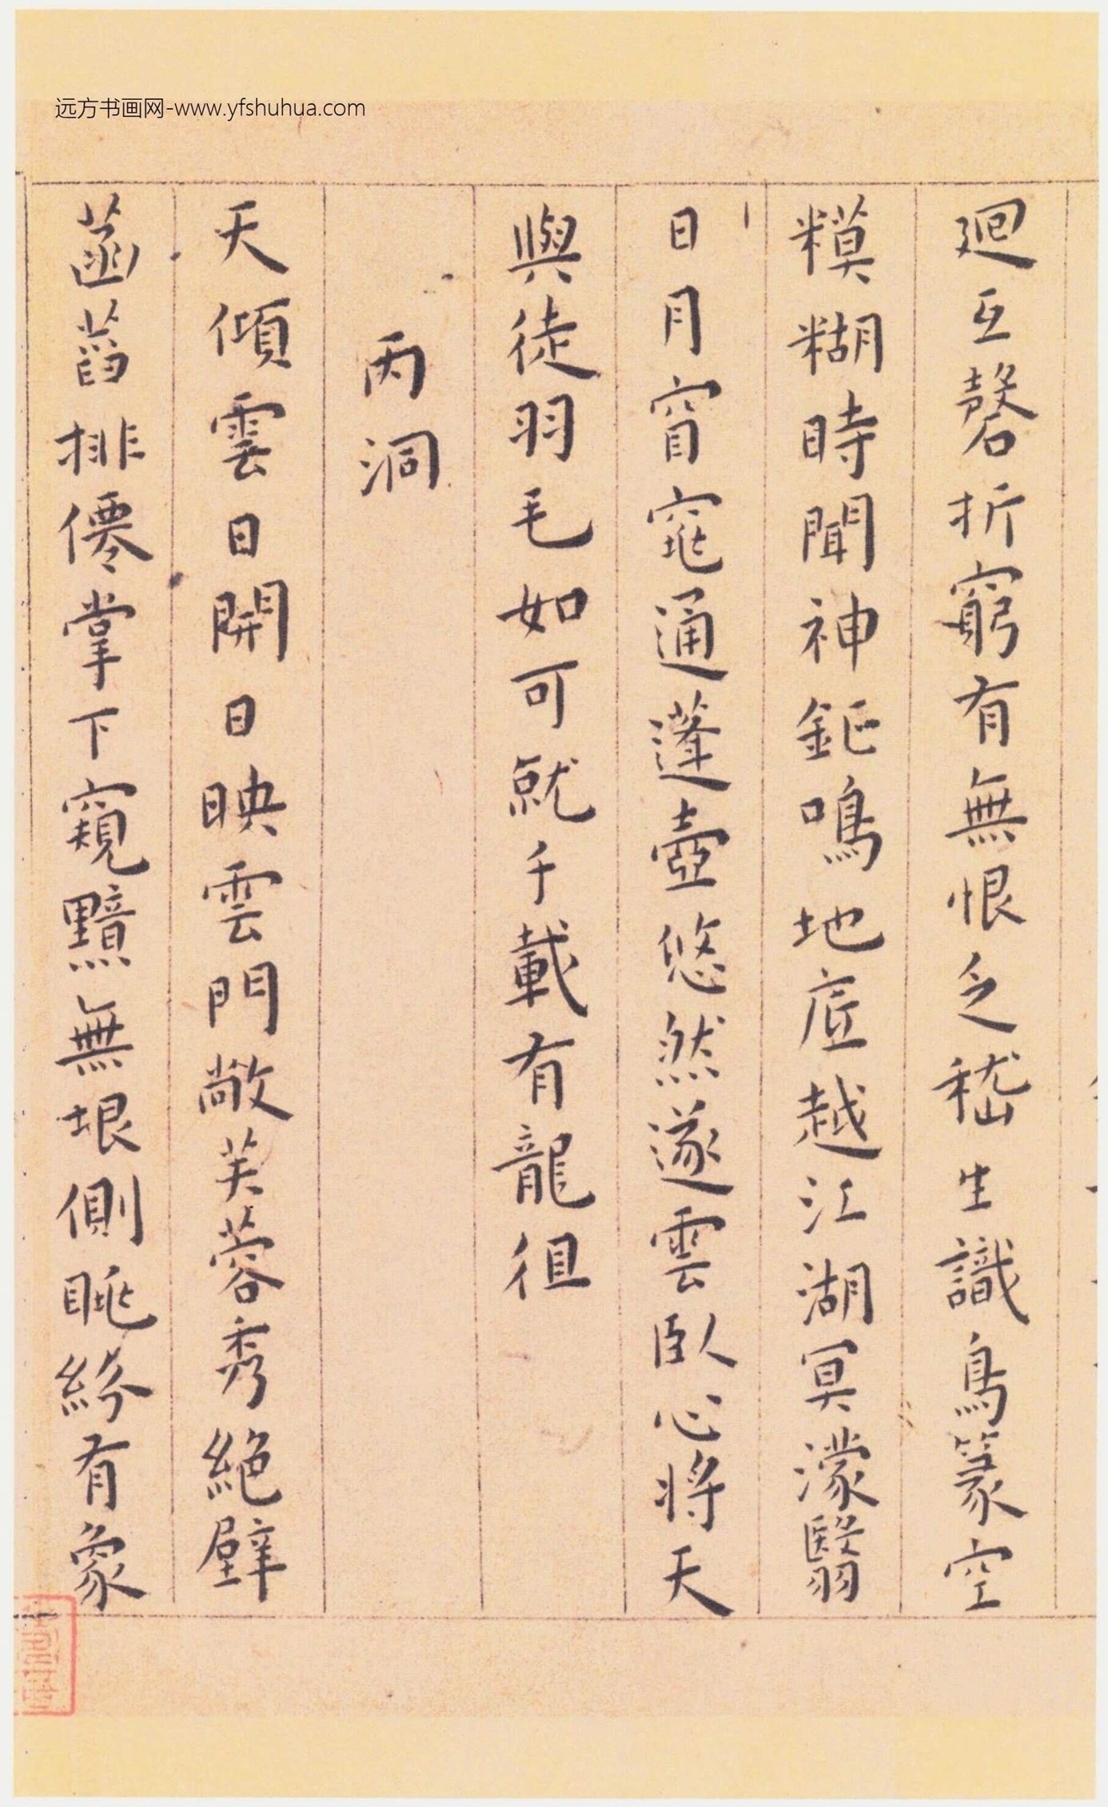 远方书画网-www.yfshuhua.com
廻互磬折窮有無恨乏嵇生識鳥篆空
糢糊時聞神鉦鳴地底越江湖冥濛翳
日月窅窕通蓬壺悠然遂雲臥心將天
與徒羽毛如可就千載有龍徂
丙洞
天傾雲日開日映雲門敞芙蓉秀絕壁
菡萏排僊掌下窺黯無垠側眺紛有象